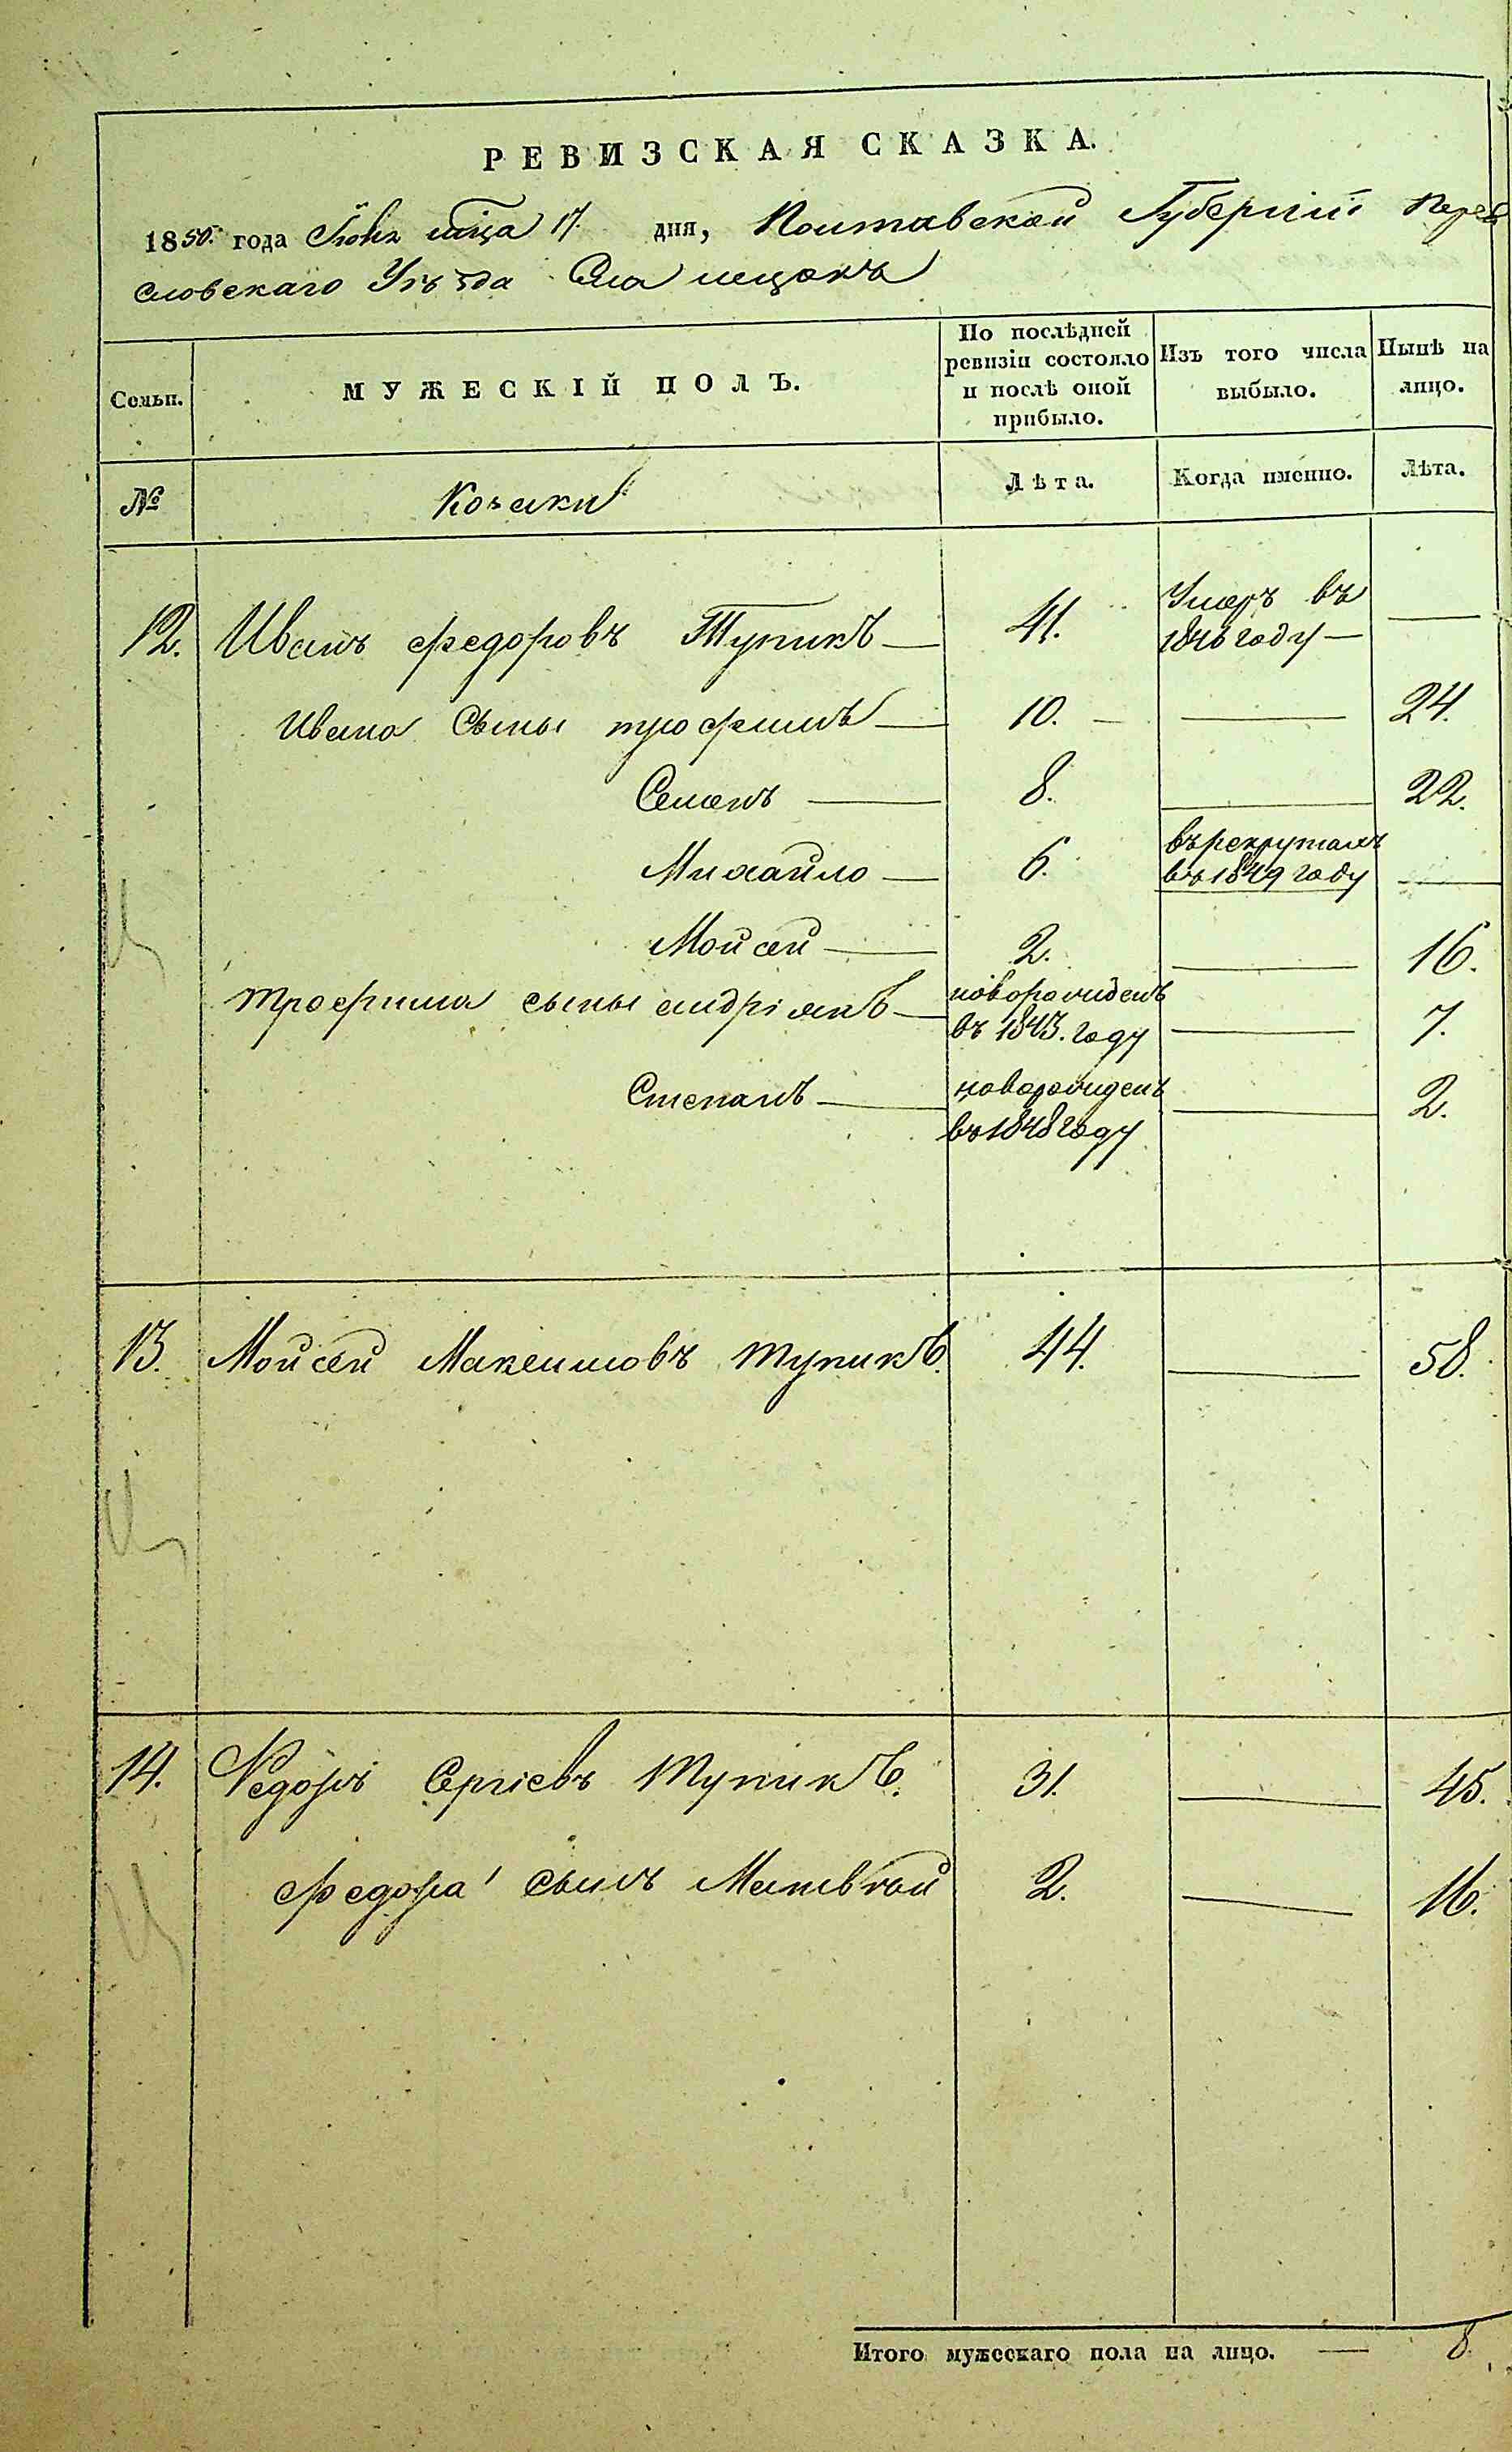 РЕВИЗСКАЯ СКАЗКА.
1850. года Июня мца 17. дня, Полтавской Губерніи Перея
словскаго Уѣзда Села
Семьи.
МУЖЕСКІЙ ПОЛЪ.
По послѣдней ревизіи состояло и послѣ оной прибыло.
Изъ того числа выбыло.
Нынѣ на лицо.
№
Козаки
Лѣта.
Когда именно.
Лѣта.
12. Иванъ федоровъ Тупикъ — 41. Умеръ въ 1846 году — —
Ивана Сыны трофимъ — 10. — — 24.
Семенъ — 8. — 22.
Михайло — 6. въ рекрутахъ въ 1849 году —
Мойсей — 2. — 16.
трофима сыны андріянъ — новорожденъ въ 1843. году — 7.
Степанъ — новорожденъ въ 1848 году — 2.
13. Мойсей Максимовъ тупикъ 44. — 58.
14. Федоръ Сергіевъ Тупикъ. 31. — 45.
федора сынъ Матвѣй 2. — 16.
Итого мужескаго пола на лицо. — 8.